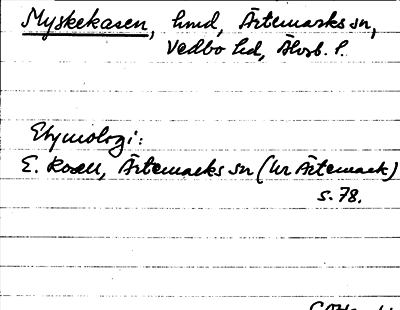 Myskekasen, hmd, Ärtemarks sn,
Vedbo hd, Älvsb. l.
Etymologi:
E. Rosell, Ärtemarks sn (ur Ärtemark)
s. 78.